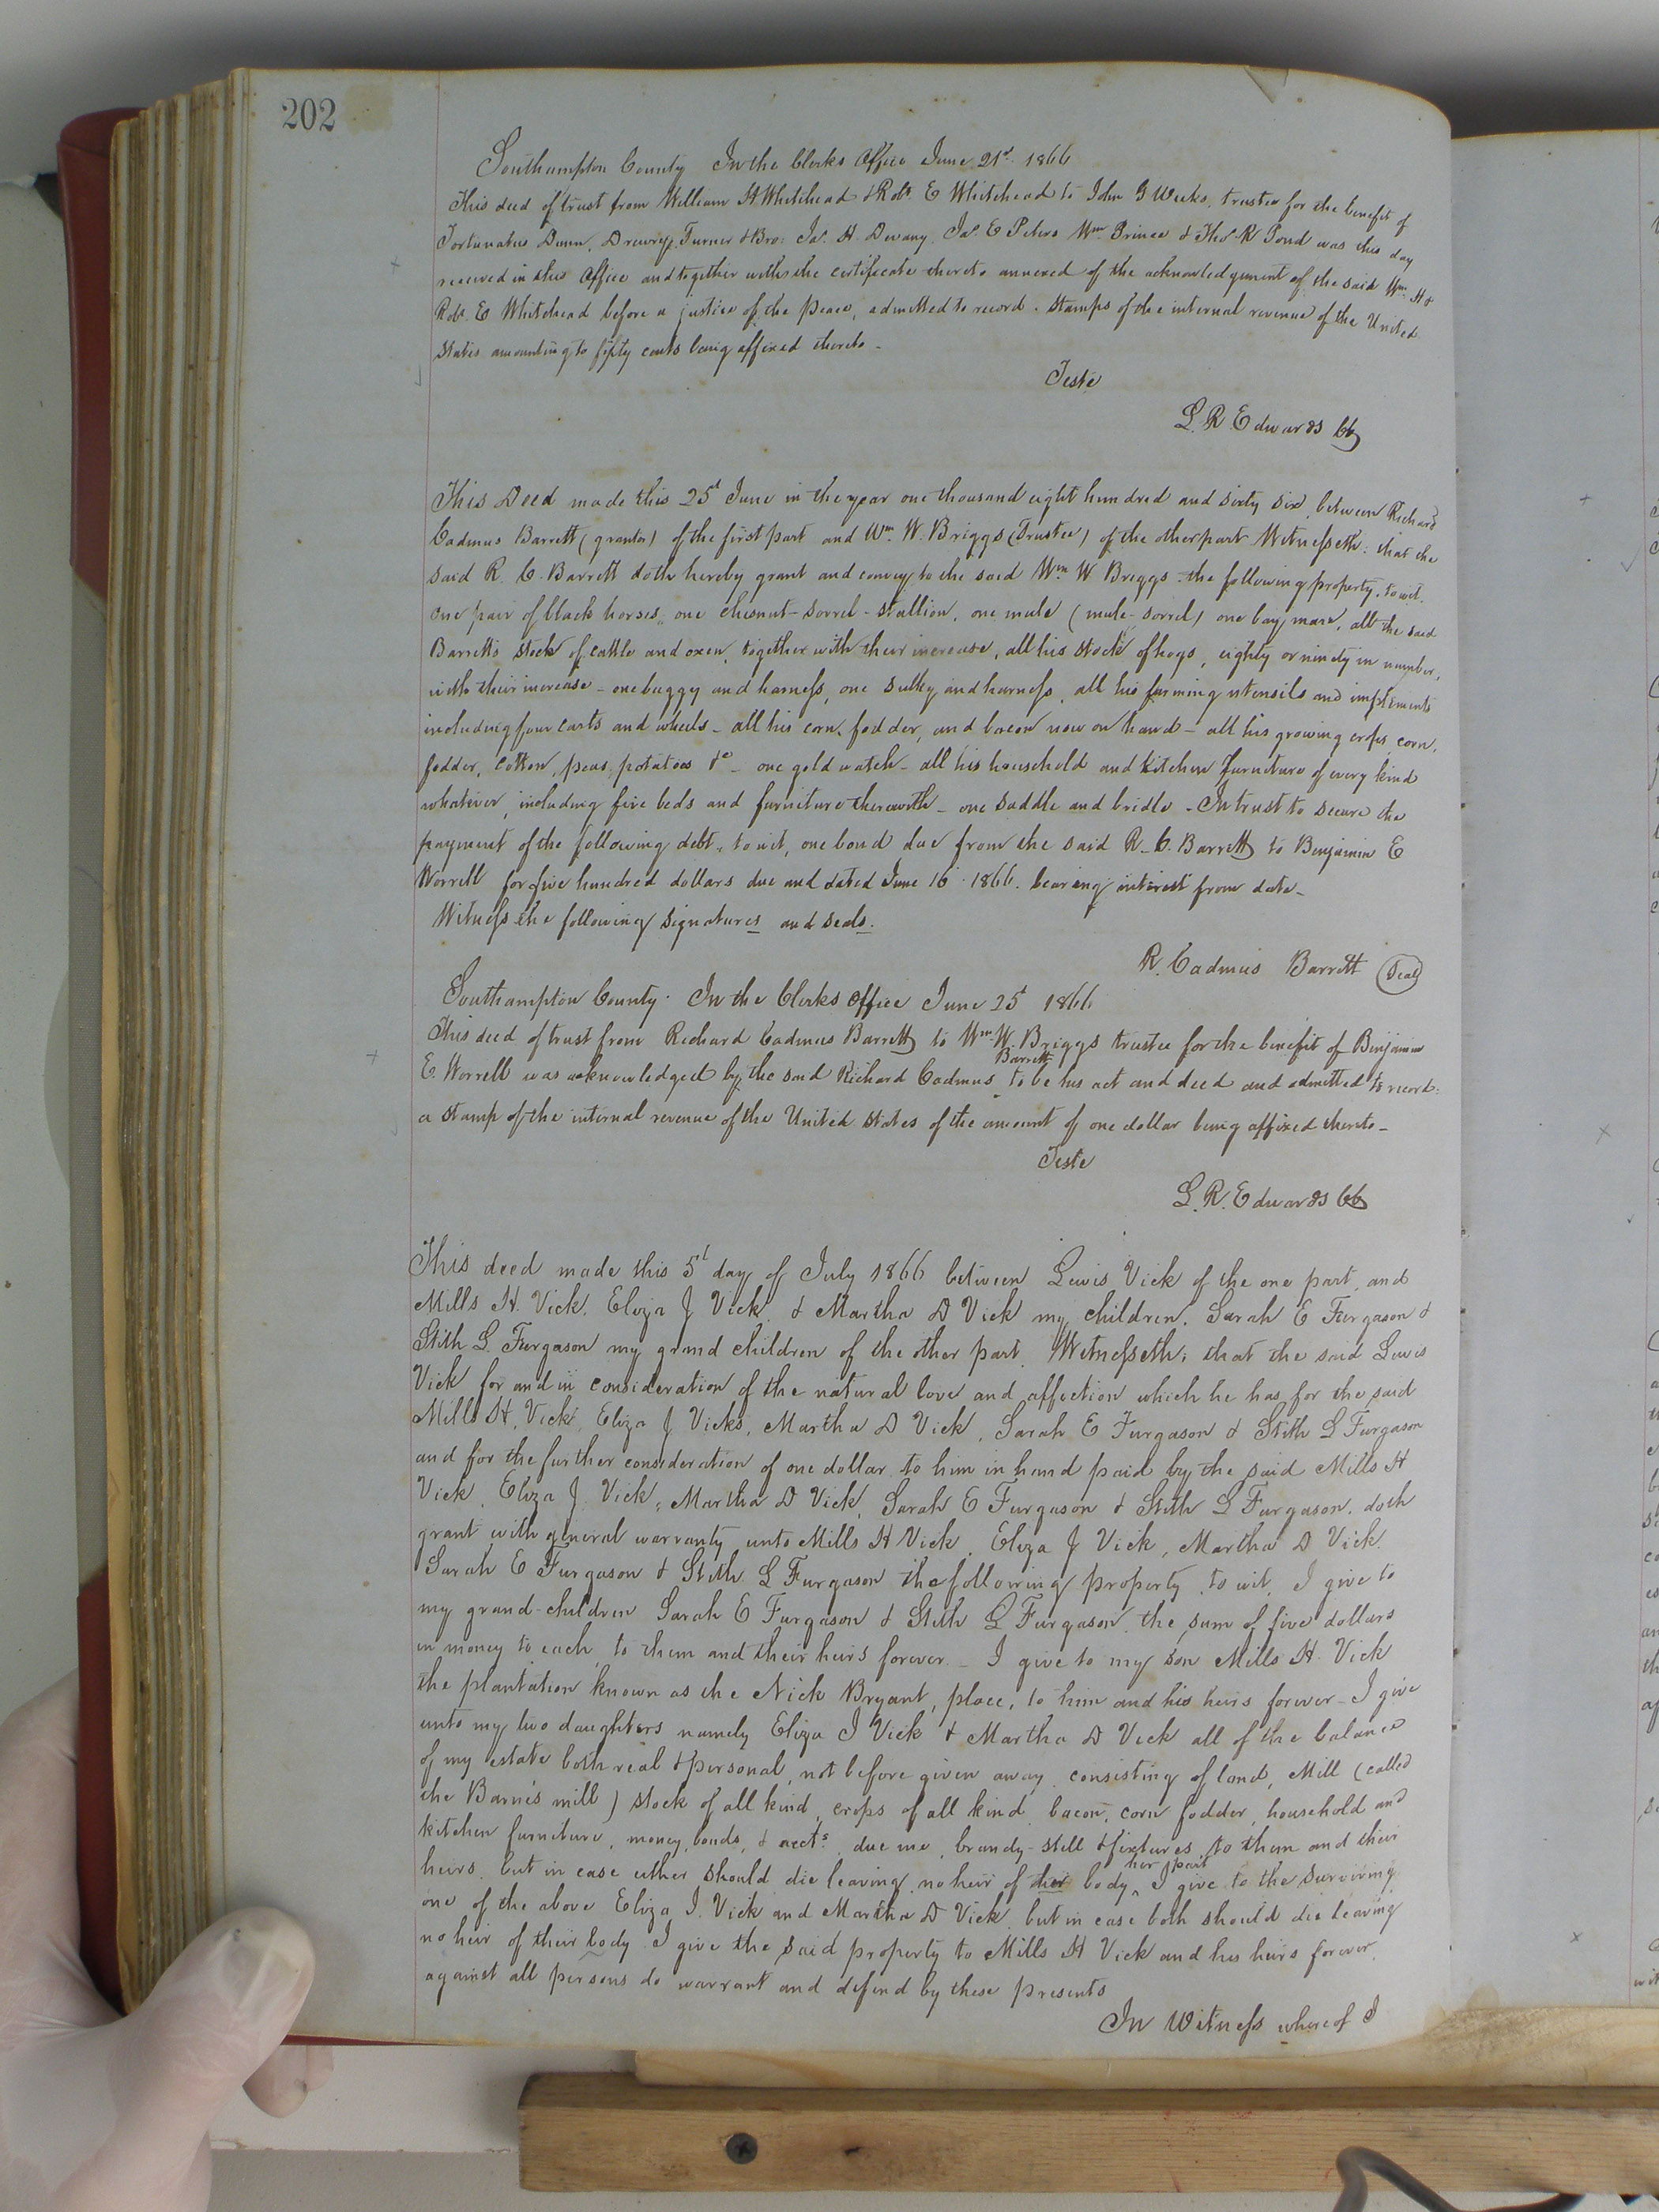 202
Southampton County In the Clerks Office June 21st 1866
This deed of trust from William H Whitehead & Robt. E Whitehead to John G Weeks, trustee for the benefit of
Fortunatus Dunn, Drewry, Turner & Bro: Jas. H. Devany, Jas. E Peters Wm. Prince & Thos. R Pond was this day
received in this Office and together with the certificate thereto annexed of the acknowledgement of the said Wm. H &
Robt. E Whitehead before a justice of the peace, admitted to record. Stamps of the internal revenue of the United
States amounting to fifty cents being affixed thereto -
Teste
L. R. Edwards CC
This Deed made this 25d June in the year one thousand eight hundred and sixty six, between Richard
Cadmus Barrett (grantor) of the first part and Wm. W. Briggs (Trustee) of the other part Witnesseth: that the
said R. C. Barrett doth hereby grant and convey to the said Wm. W Briggs - the following property, to wit.
One pair of black horses, one chesnut-sorrel-stallion, one mule (mule-sorrel) one bay mare, all the said
Barretts stock of cattle and oxen, together with their increase, all his stock of hogs, eighty or ninety in number,
with their increase - one buggy and harness, one sulky and harness, all his farming utensils and impliments
including four carts and wheels - all his corn, fodder, and bacon now on hand - all his growing crops, corn,
fodder, cotton, peas, potatoes &c - one gold watch - all his household and kitchen furniture of every kind
whatever, including five beds and furniture therewith - one saddle and bridle - In trust to secure the
payment of the following debt, to wit, one bond due from the said R. C. Barrett to Benjamin E
Worrell for five hundred dollars due and dated June 16 1866. bearing interest from date -
Witness the following signatures and seals.
R. Cadmus Barrett Seal
Southampton County. In the Clerks Office June 25d 1866
This deed of trust from Richard Cadmus Barrett to Wm. W. Briggs trustee for the benefit of Benjamin
Barrett
E. Worrell was acknowledged by the said Richard Cadmus ^ to be his act and deed and admitted to record:
a stamp of the internal revenue of the United States of the amount of one dollar being affixed thereto -
Teste
L. R. Edwards CC
This deed made this 5d day of July 1866 between Lewis Vick of the one part, and
Mills H. Vick, Eliza J Vick, & Martha D Vick my children, Sarah E Furgason &
Stith L. Furgason my grand children of the other part, Witnesseth: that the said Lewis
Vick for and in consideration of the natural love and affection which he has for the said
Mills H. Vick, Eliza J Vicks, Martha D Vick, Sarah E Furgason & Stith L Furgason
and for the further consideration of one dollar to him in hand paid by the said Mills H
Vick, Eliza J. Vick, Martha D Vick, Sarah E Furgason & Stith L Furgason, doth
grant with general warranty unto Mills H Vick, Eliza J Vick, Martha D Vick
Sarah E Furgason & Stith L Furgason the following property, to wit, I give to
my grand-children Sarah E Furgason & Stith L Furgason, the sum of five dollars
in money to each, to them and their heirs forever - I give to my son Mills H. Vick
the plantation known as the Nick Bryant, place, to him and his heirs forever - I give
unto my two daughters namely Eliza J Vick & Martha D Vick all of the balance
of my estate both real & personal, not before given away, consisting of land, Mill (called
the Barnes mill) stock of all kind, crops of all kind, bacon, corn fodder, household and
kitchen furniture, money, bonds, & accts. due me, brandy-still & fixtures, to them and their
her part
heirs, but in case either should die leaving no heir of her body ^ I give to the surviving
one of the above Eliza J. Vick and Martha D Vick, but in case both should die leaving
no heir of their body I give the said property to Mills H Vick and his heirs forever,
against all persons do warrant and defend by these presents
In Witness whereof I